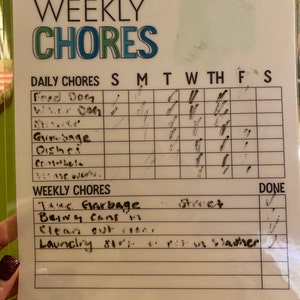 WEEKLY
CHORES
DAILY CHORES S M T W TH F S
Feed Dog
Water Dog
Shower
Garbage
Dishes
Homework
WEEKLY CHORES DONE
Take Garbage Street
Bring Cans in
Clean out
Laundry in Washer